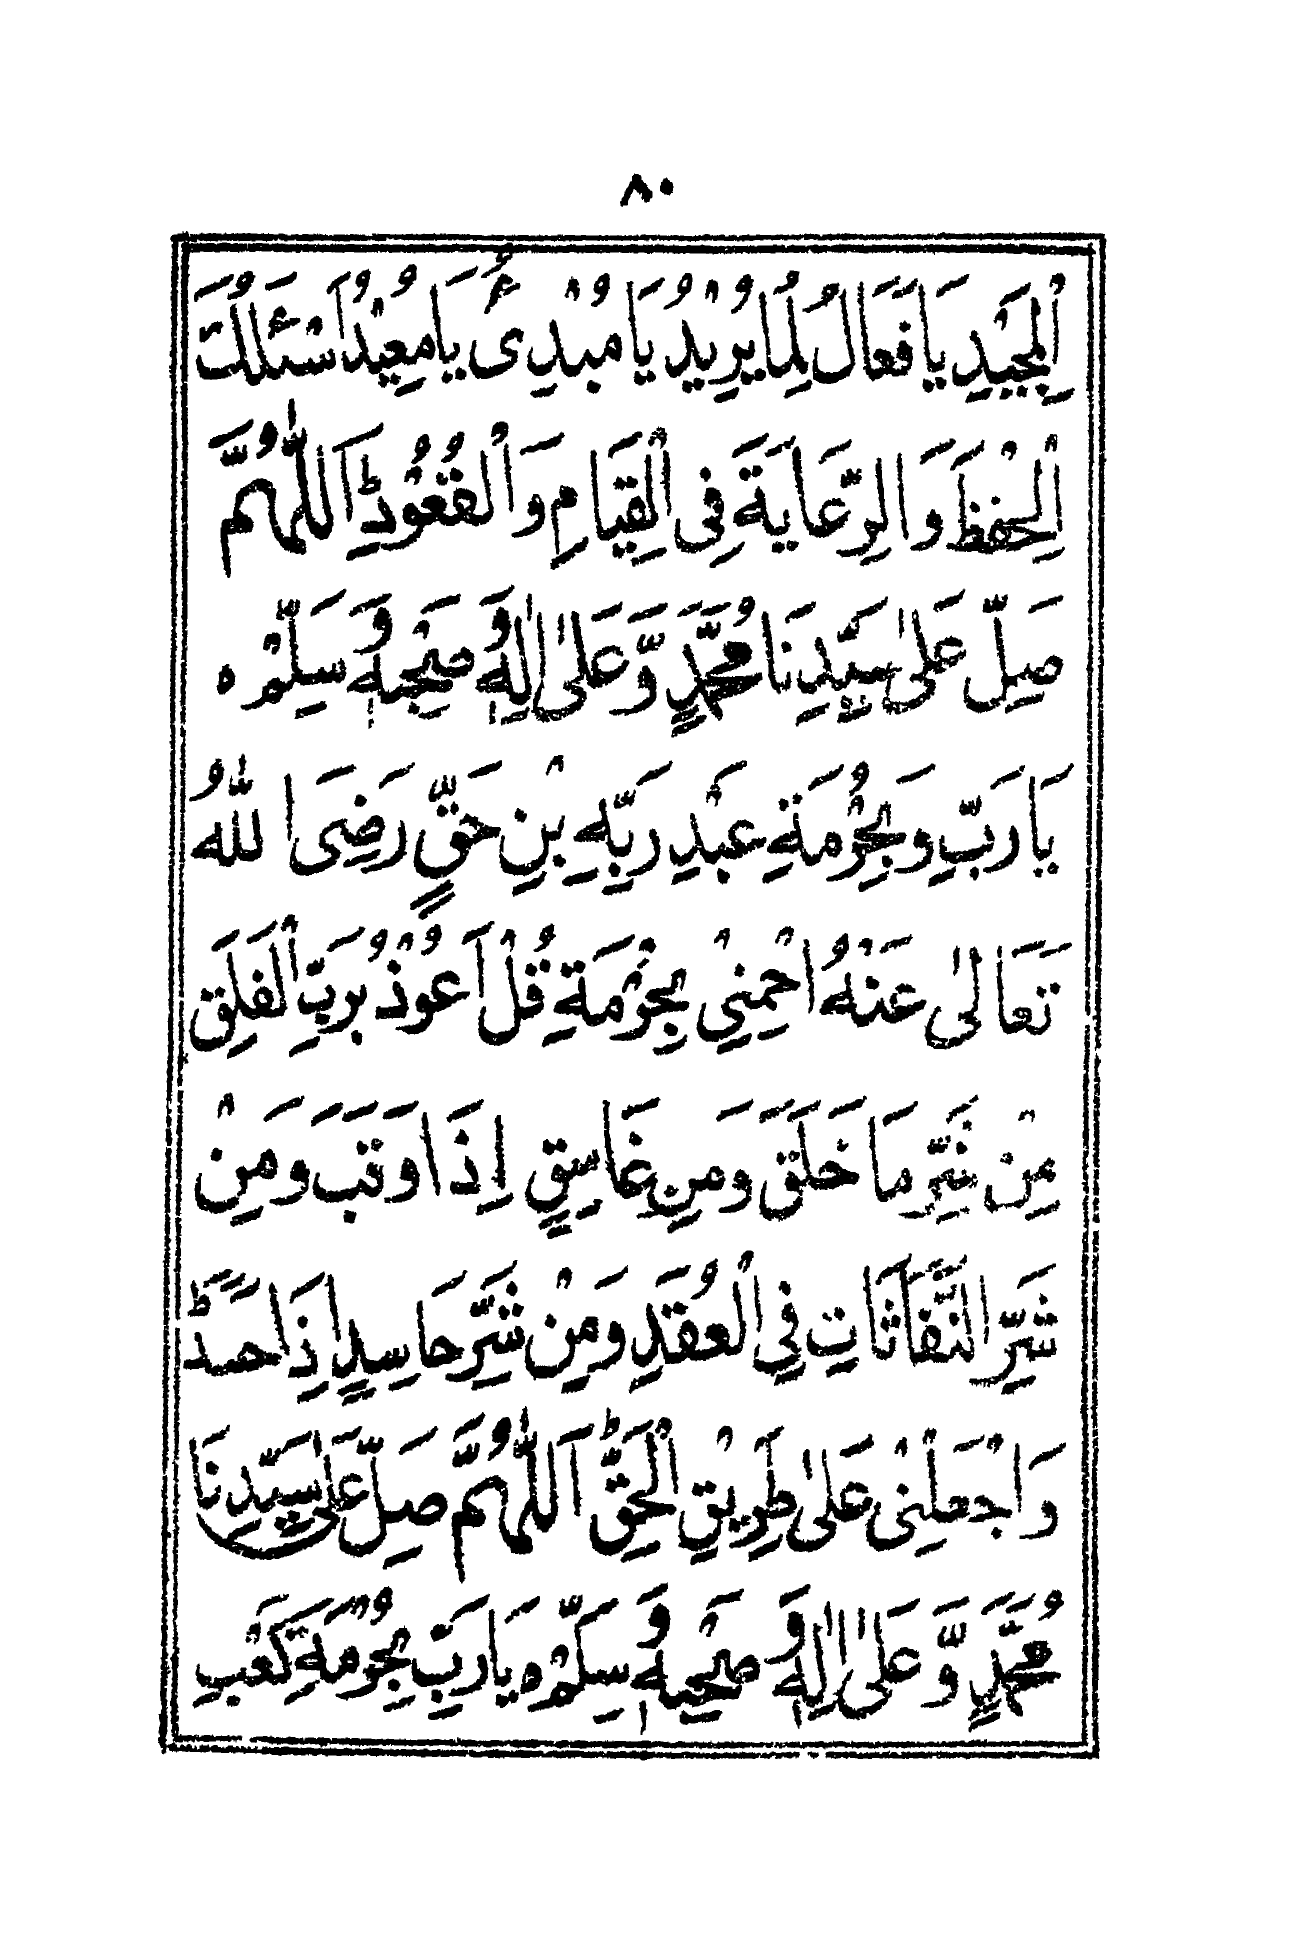 ٨٠
الْمَجِيْدِ يَا فَعَّالُ لِمَا يُرِيْدُ يَا مُبْدِئُ يَا مُعِيْدُ اَسْئَلُكَ
الْحِفْظَ وَالرِّعَايَةَ فِى الْقِيَامِ وَالْقُعُوْدِؕ اَللّٰهُمَّ
صَلِّ عَلٰى سَيِّدِنَا مُحَمَّدٍ وَّعَلٰى اٰلِهٖ وَصَحْبِهٖ وَسَلِّمْ ه
يَا رَبِّ وَبِحُرْمَةِ عَبْدِ رَبِّهِ بْنِ حَقٍّ رَضِىَ اللّٰهُ
تَعَالٰى عَنْهُ احْمِنِىْ بِحُرْمَةِ قُلْ اَعُوْذُ بِرَبِّ الْفَلَقِ
مِنْ شَرِّ مَا خَلَقَ وَمِنْ غَاسِقٍ اِذَا وَقَبَ وَمِنْ
شَرِّ النَّفَّاثَاتِ فِى الْعُقَدِ وَمِنْ شَرِّ حَاسِدٍ اِذَا حَسَدَؕ
وَاجْعَلْنِىْ عَلٰى طَرِيْقِ الْحَقِّؕ اَللّٰهُمَّ صَلِّ عَلٰى سَيِّدِنَا
مُحَمَّدٍ وَّعَلٰى اٰلِهٖ وَصَحْبِهٖ وَسَلِّمْ ه يَا رَبِّ بِحُرْمَةِ كَعْبِ